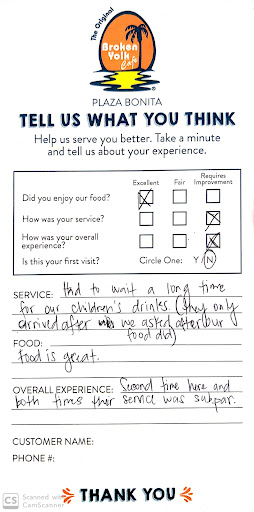 The Original
Broken
Yolk
Cafe
®
PLAZA BONITA
TELL US WHAT YOU THINK
Help us serve you better. Take a minute
and tell us about your experience.
Excellent Fair Requires Improvement
Did you enjoy our food?
How was your service?
How was your overall
experience?
Is this your first visit? Circle One: Y / N
SERVICE: Had to wait a long time
for our children's drinks (they only
arrived after we asked after our
food did)
FOOD:
Food is great.
OVERALL EXPERIENCE: Second time here and
both times their service was subpar.
CUSTOMER NAME:
PHONE #:
THANK YOU
CS Scanned with
CamScanner